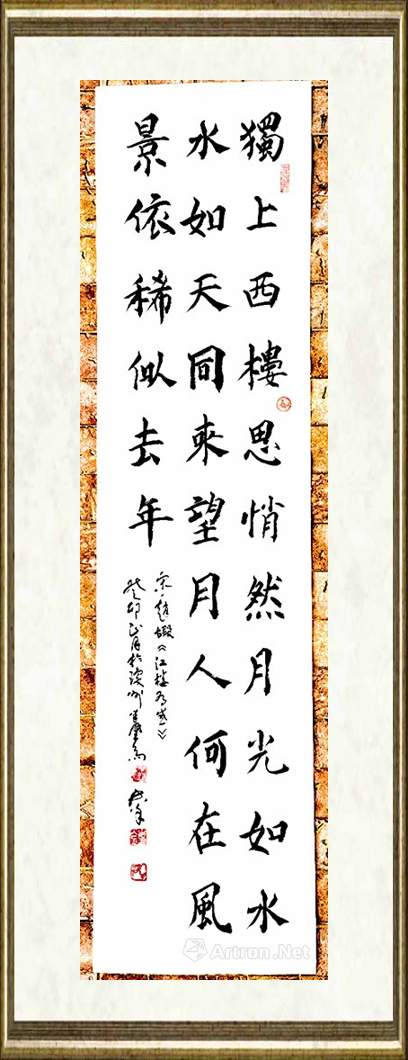 獨上西樓思悄然月光如水
水如天同來望月人何在風
景依稀似去年
宋趙嘏《江樓有感》
癸卯正月於深圳
Artron.Net